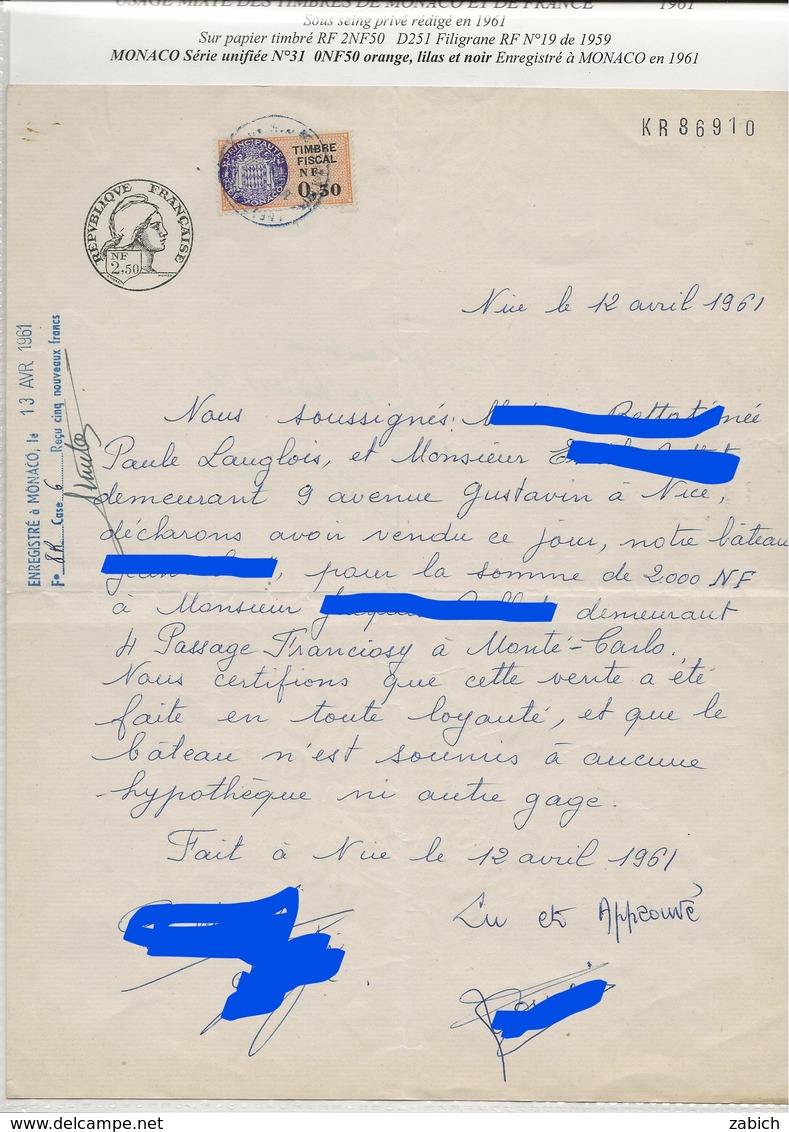 USAGE MIXTE DES TIMBRES DE MONACO ET DE FRANCE 1961
Sous seing privé rédigé en 1961
Sur papier timbré RF 2NF50 D251 Filigrane RF N°19 de 1959
MONACO Série unifiée N°31 0NF50 orange, lilas et noir Enregistré à MONACO en 1961
KR86910
TIMBRE
FISCAL
NF
0,50
PRINCIPAUTÉ
DE MONACO
REPVBLIQVE FRANÇAISE
NF
2,50
ENREGISTRÉ à MONACO, le 13 AVR 1961
F° 8R Case 6 Reçu cinq nouveaux francs
Nice le 12 avril 1961
Nous soussignés née
Paule Langlois, et Monsieur
demeurant 9 avenue Gustavin à Nice,
déclarons avoir vendu ce jour, notre bâteau
, pour la somme de 2.000 NF
à Monsieur demeurant
4 Passage Franciosy à Monté-Carlo.
Nous certifions que cette vente a été
faite en toute loyauté, et que le
bâteau n'est soumis à aucune
hypothèque ni autre gage.
Fait à Nice le 12 avril 1961
Lu et Approuvé
zabich